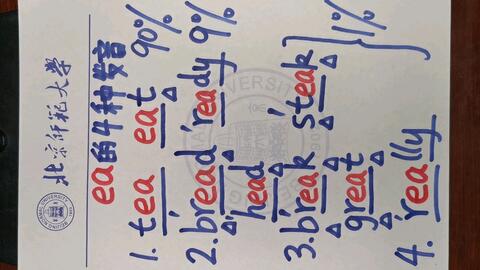 北京师范大学
ea的4种发音
1. tea eat 90%
2. bread ready 9%
head
3. break steak
great
4. really
1%